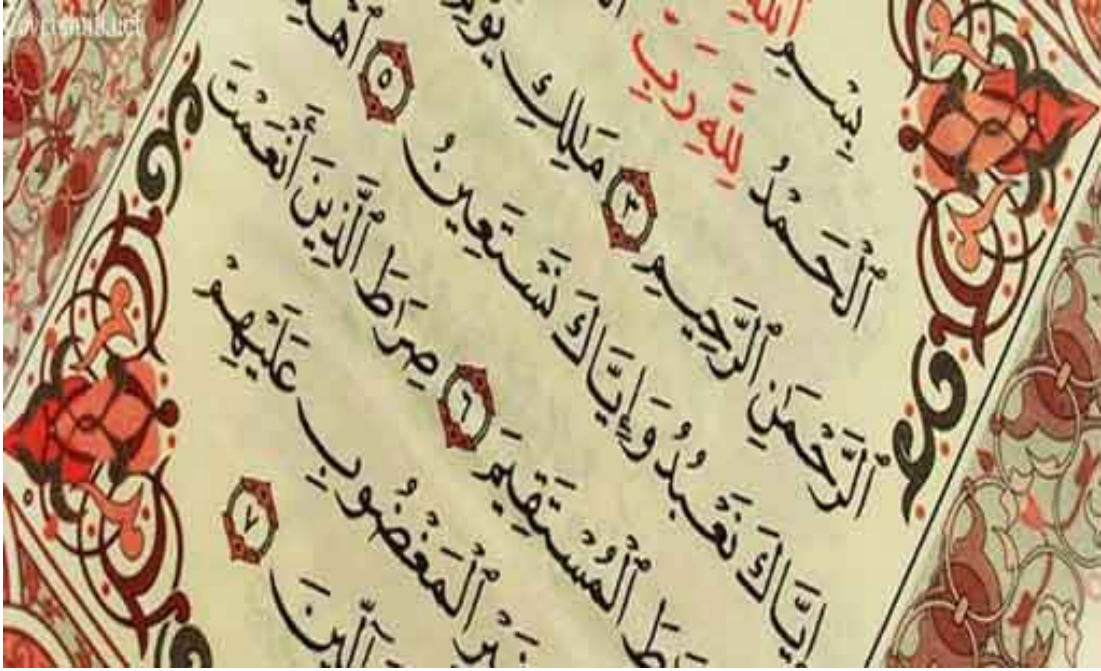 بِسْمِ ٱللَّهِ
ٱلْحَمْدُ لِلَّهِ رَبِّ
ٱلرَّحْمَٰنِ ٱلرَّحِيمِ ٣ مَٰلِكِ
إِيَّاكَ نَعْبُدُ وَإِيَّاكَ نَسْتَعِينُ ٥
ٱلْمُسْتَقِيمَ ٦ صِرَٰطَ ٱلَّذِينَ أَنْعَمْتَ
غَيْرِ ٱلْمَغْضُوبِ عَلَيْهِمْ
٧